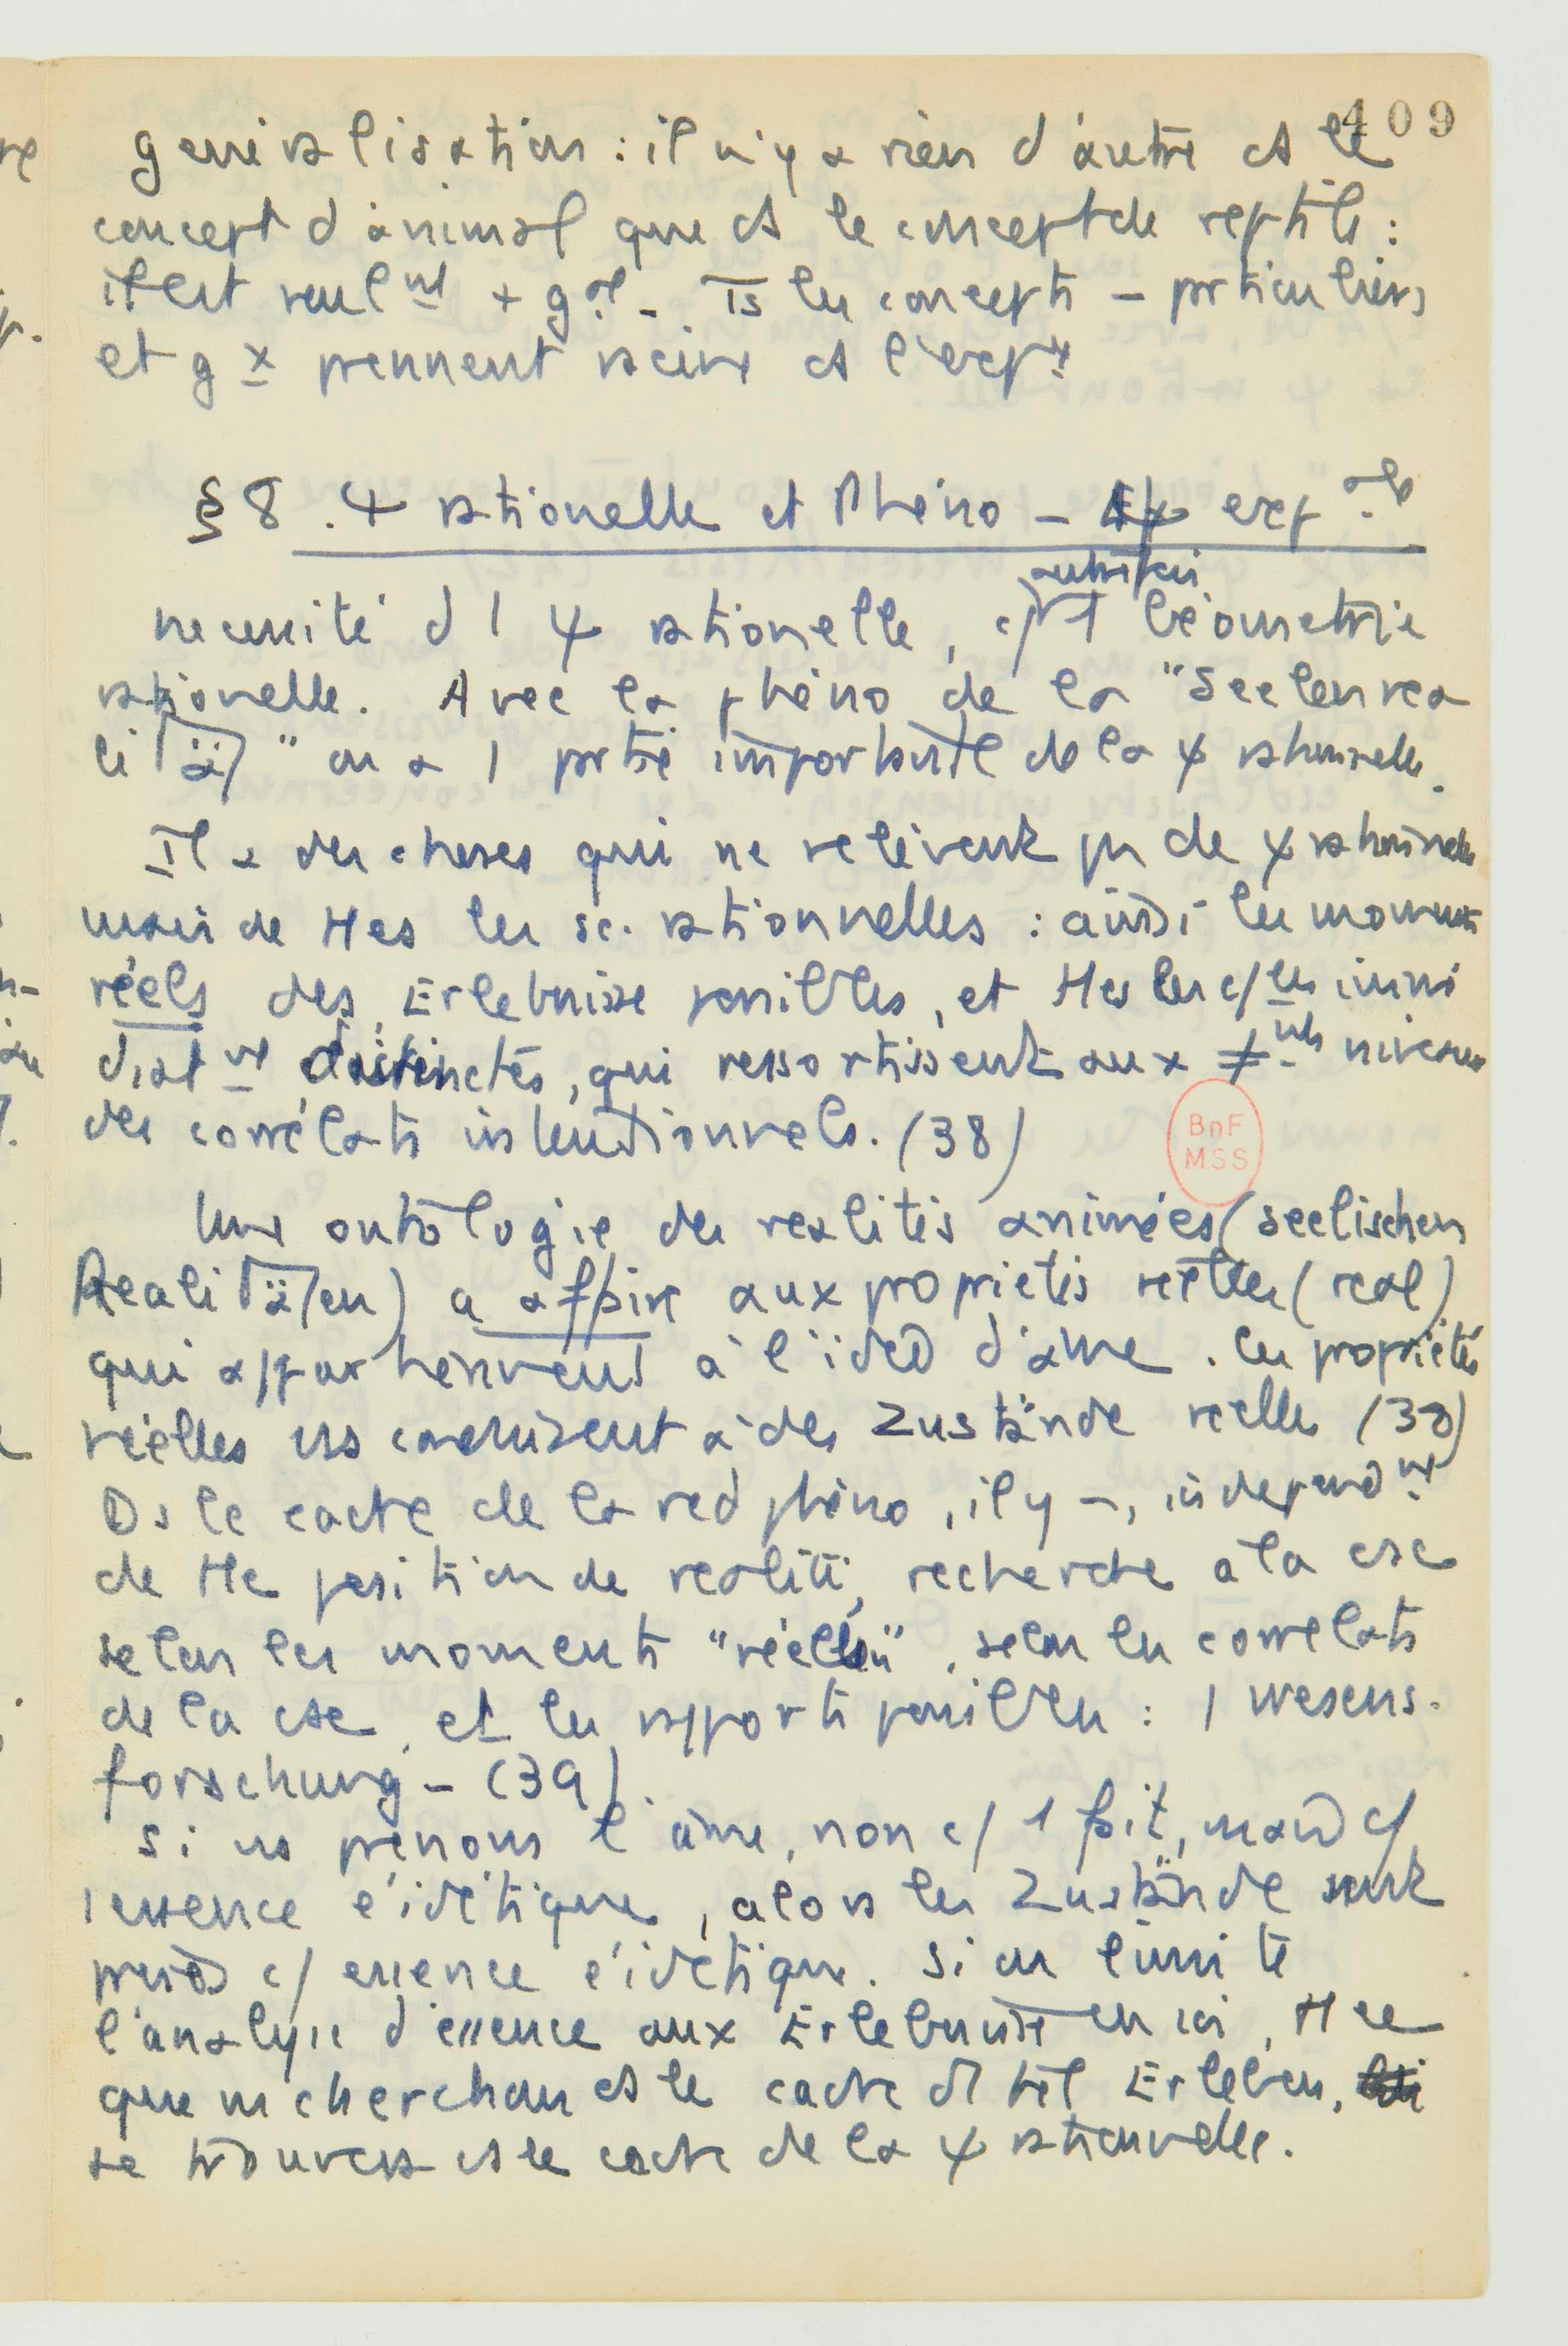 409
généralisation : il n'y a rien d'autre ds le
concept d'animal que ds le concept de reptile :
il est seul nt + g al - . Ts les concepts - particuliers
et g x prennent racine ds l'exp ce
§ 8 . ψ rationelle et Phéno - ψ exp ale
autrefois
necessité d 1 ψ rationelle, c/ 1 Géometrie
rationelle. Avec la phéno de la "Seelenrea
lität" on a 1 partie importante de la ψ rationnelle.
Il a des choses qui ne relèvent pas de ψ rationnelle
mais de ttes les sc. rationnelles : ainsi les moments
réels des Erlebnisse possibles, et ttes les
dist nt distinctes, qui ressortissent aux ≠ nts niveaux
des corrélats intentionnels. (38)
Une ontologie des realités animées (seelischen
Realitäten) a affaire aux propriétés réelles (real)
qui appartiennent à l'idée d'âme. les propriétés
réelles ns conduisent à des Zustände réelles (38)
Ds le cadre de la red phéno, il y a, independ nt
de tte position de realité, recherche de la csc
selon les moments "réels", selon les correlats
de la csc, et les rapports possibles : 1 Wesens-
forschung - (39)
Si ns prenons l'âme, non c/ 1 fait, mais c/
1 essence éidétique, alors les Zustände sont
pris c/ essence éidétique. Si on limite
l'analyse d'essence aux Erlebnisse en soi, tt ce
que ns cherchons ds le cadre d'1 tel Erleben,
se trouvera ds le cadre de la ψ rationnelle.
BnF
MSS